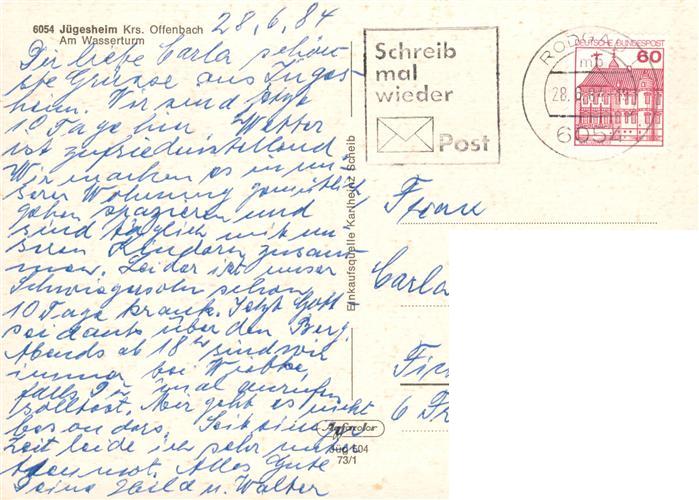 6054 Jügesheim Krs. Offenbach
Am Wasserturm
28.6.84
Dir liebe Carla schön-
ste Grüsse aus Jüges-
heim. Wir sind jetzt
10 Tage hier, Wetter
ist zufriedenstellend
Wir machen es in un-
serer Wohnung gemütlich
gehen spazieren und
sind täglich mit un-
seren Kindern zusam-
men. Leider ist unser
Schwiegersohn schon
10 Tage krank. Jetzt Gott
sei dank über den Berg.
Abends ab 18 Uhr sind wir
immer bei
falls Du mal anrufen
solltest. Mir geht es nicht
besonders. Seit einiger
Zeit leide ich sehr unter
Atemnot. Alles Gute
Deine Hild u. Walter
Einkaufsquelle Karlheinz Scheib
Agfacolor
Jüg 504
73/1
Schreib
mal
wieder
Post
RODGAU
mb
28.6.84
6054
DEUTSCHE BUNDESPOST
60
Frau
Carla
6 Fr